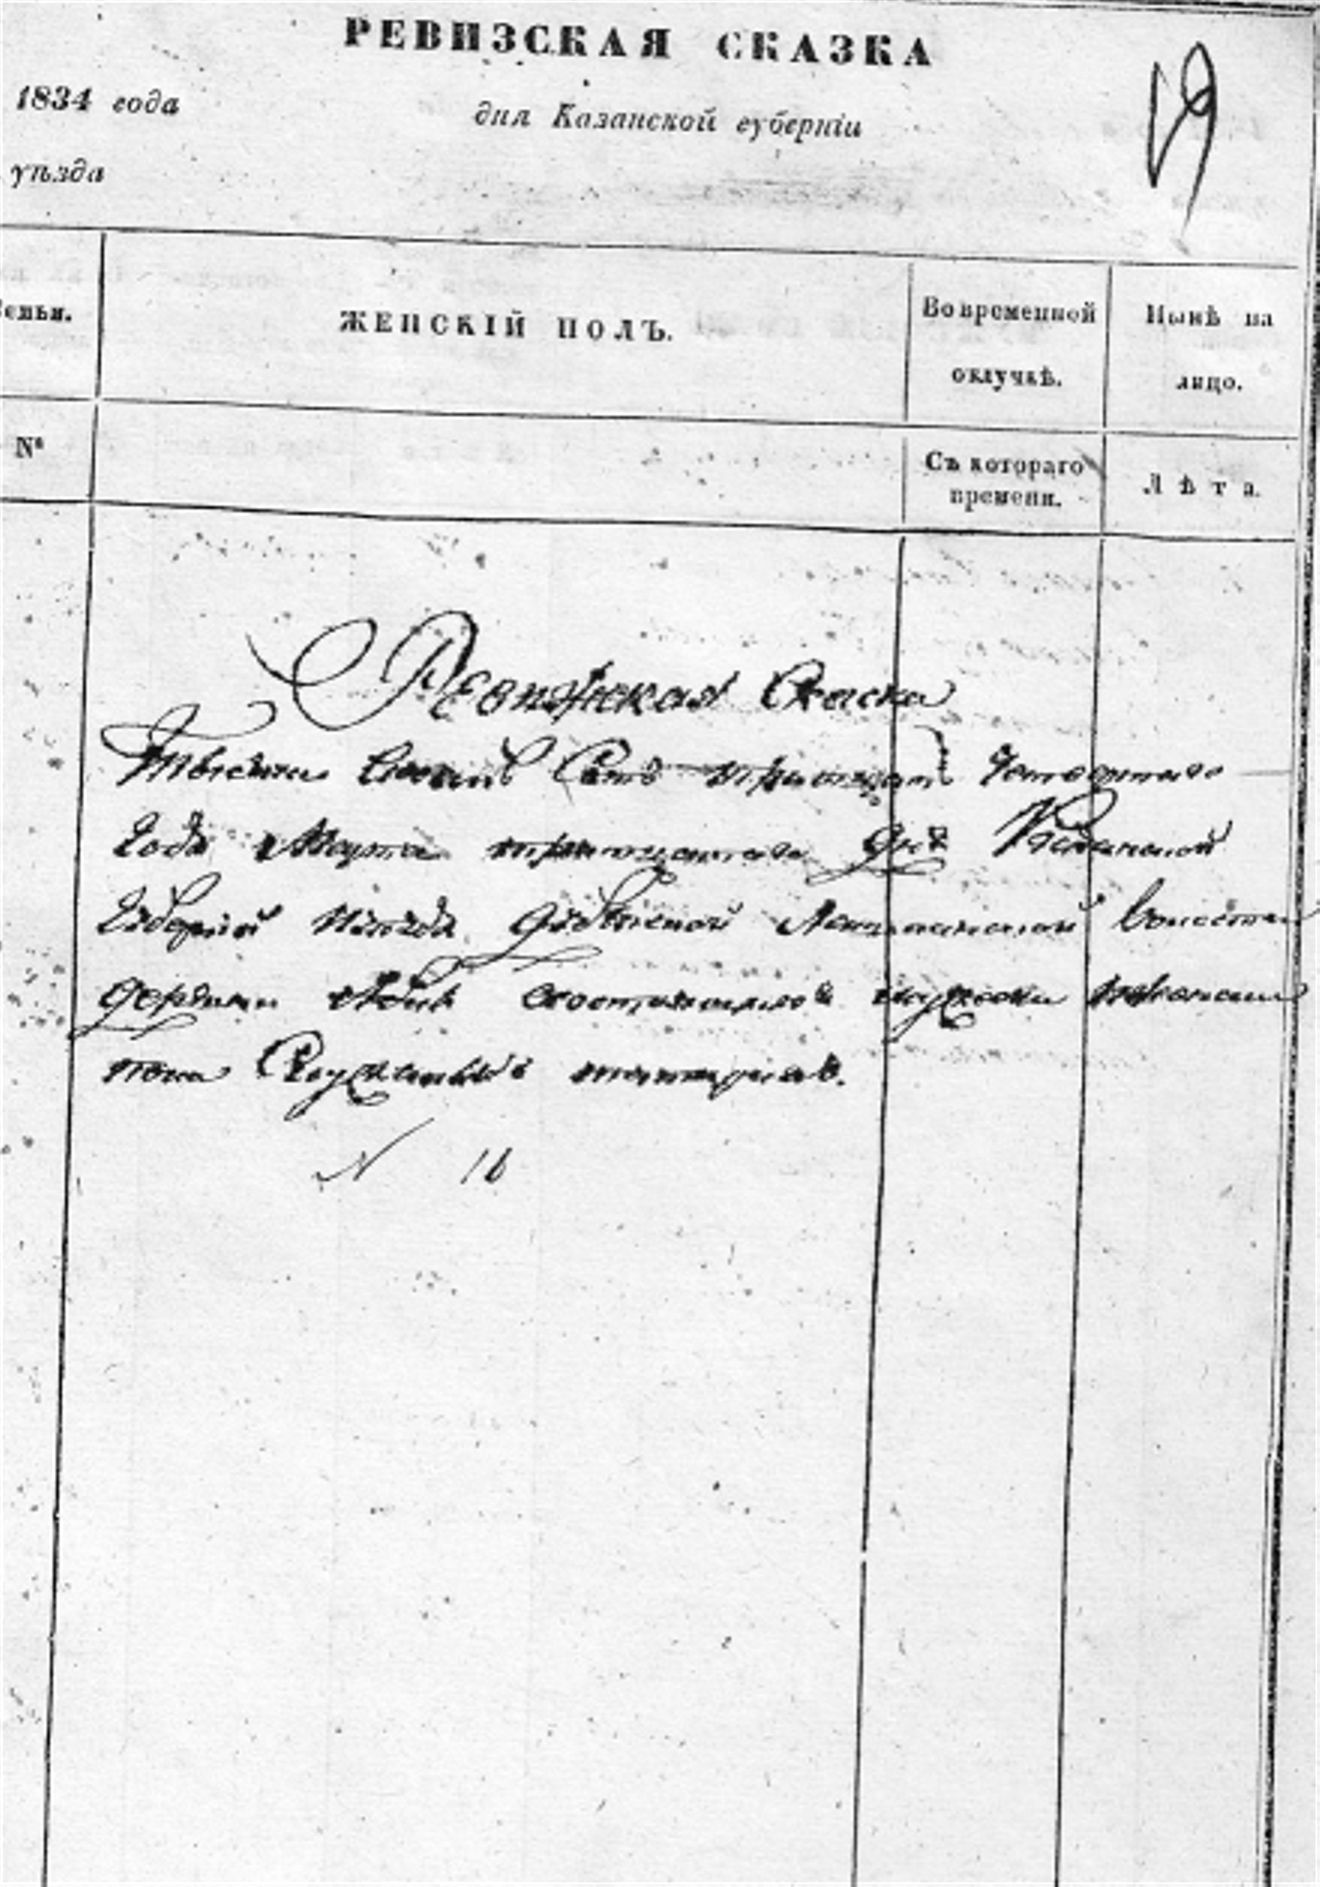 РЕВИЗСКАЯ СКАЗКА
19
1834 года
дня Казанской губерніи
уѣзда
семьи.
ЖЕНСКІЙ ПОЛЪ.
Во временной
отлучкѣ.
Нынѣ на
лицо.
№
Съ котораго
времени.
Лѣта.
Ревижская Скаска
Тысяча восемь Сотъ тритцать четвертаго
Года Марта дня Казанской
Губерній волости
деревни мужска
пола Служилыхъ татаръ.
N 16